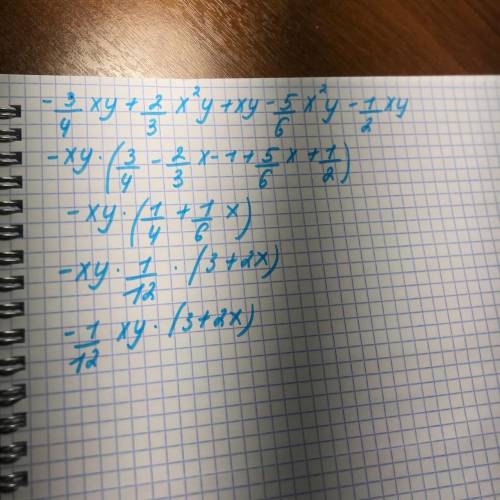 -3/4 xy + 2/3 x²y + xy - 5/6 x²y - 1/2 xy
-xy · (3/4 - 2/3 x - 1 + 5/6 x + 1/2)
-xy · (1/4 + 1/6 x)
-xy · 1/12 · (3 + 2x)
-1/12 xy · (3 + 2x)